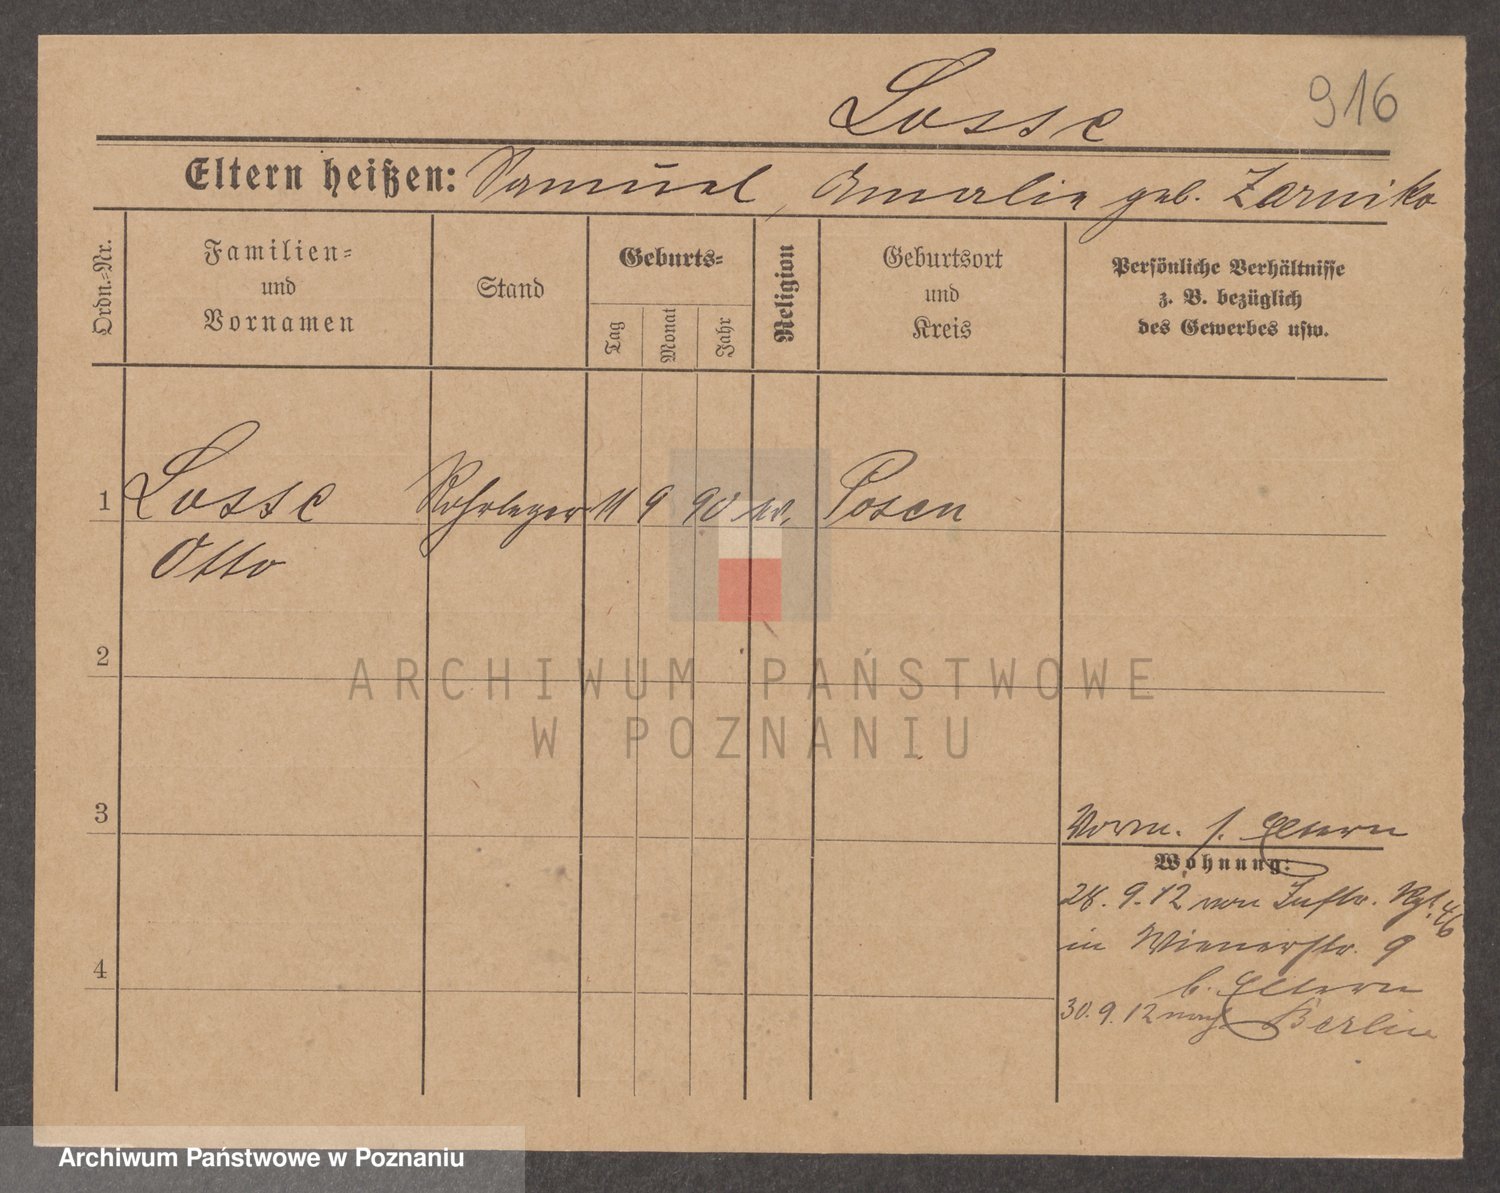 Losse
916
Eltern heißen: Samuel, Amalie geb. Zarniko
Ordn.-Nr.
Familien-
und
Vornamen
Stand
Geburts-
Tag
Monat
Jahr
Religion
Geburtsort
und
Kreis
Persönliche Verhältnisse
z. B. bezüglich
des Gewerbes usw.
1 Losse Rohrleger 11 9 90 ev. Posen
Otto
2
3
4
Vorm. s. Eltern
Wohnung:
28. 9. 12 von Inftr. Rgt. 46
in Wienerstr. 9
b. Eltern
30. 9. 12 nach Berlin
ARCHIWUM PAŃSTWOWE
W POZNANIU
Archiwum Państwowe w Poznaniu